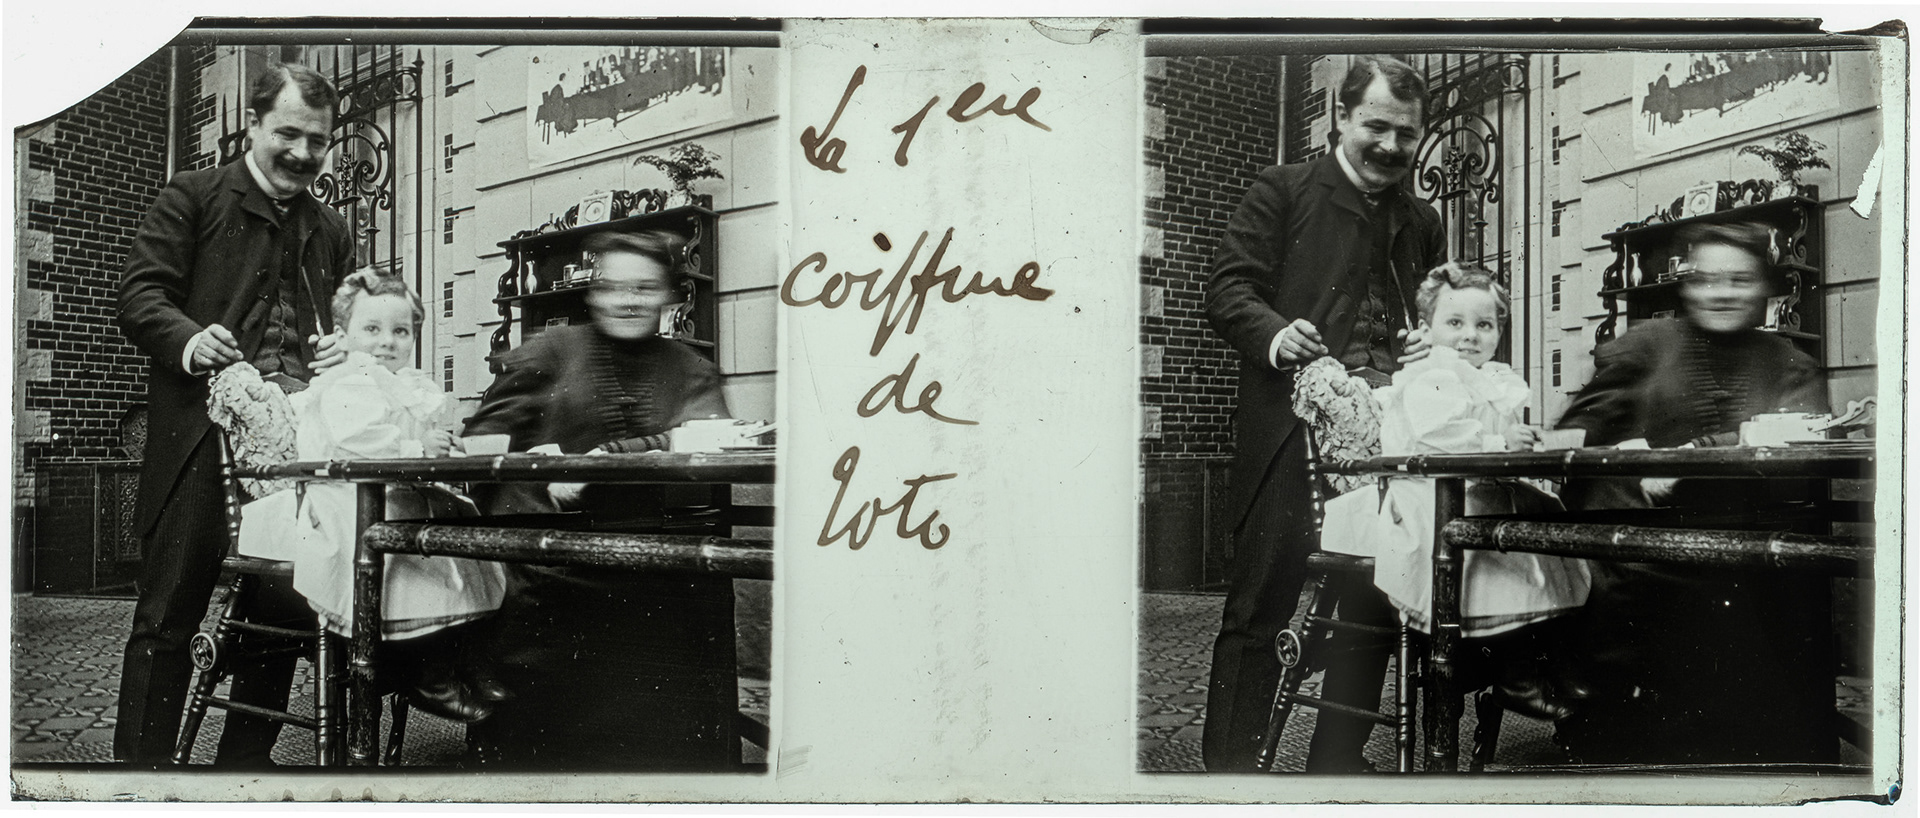 La 1ere
coiffure
de
Toto